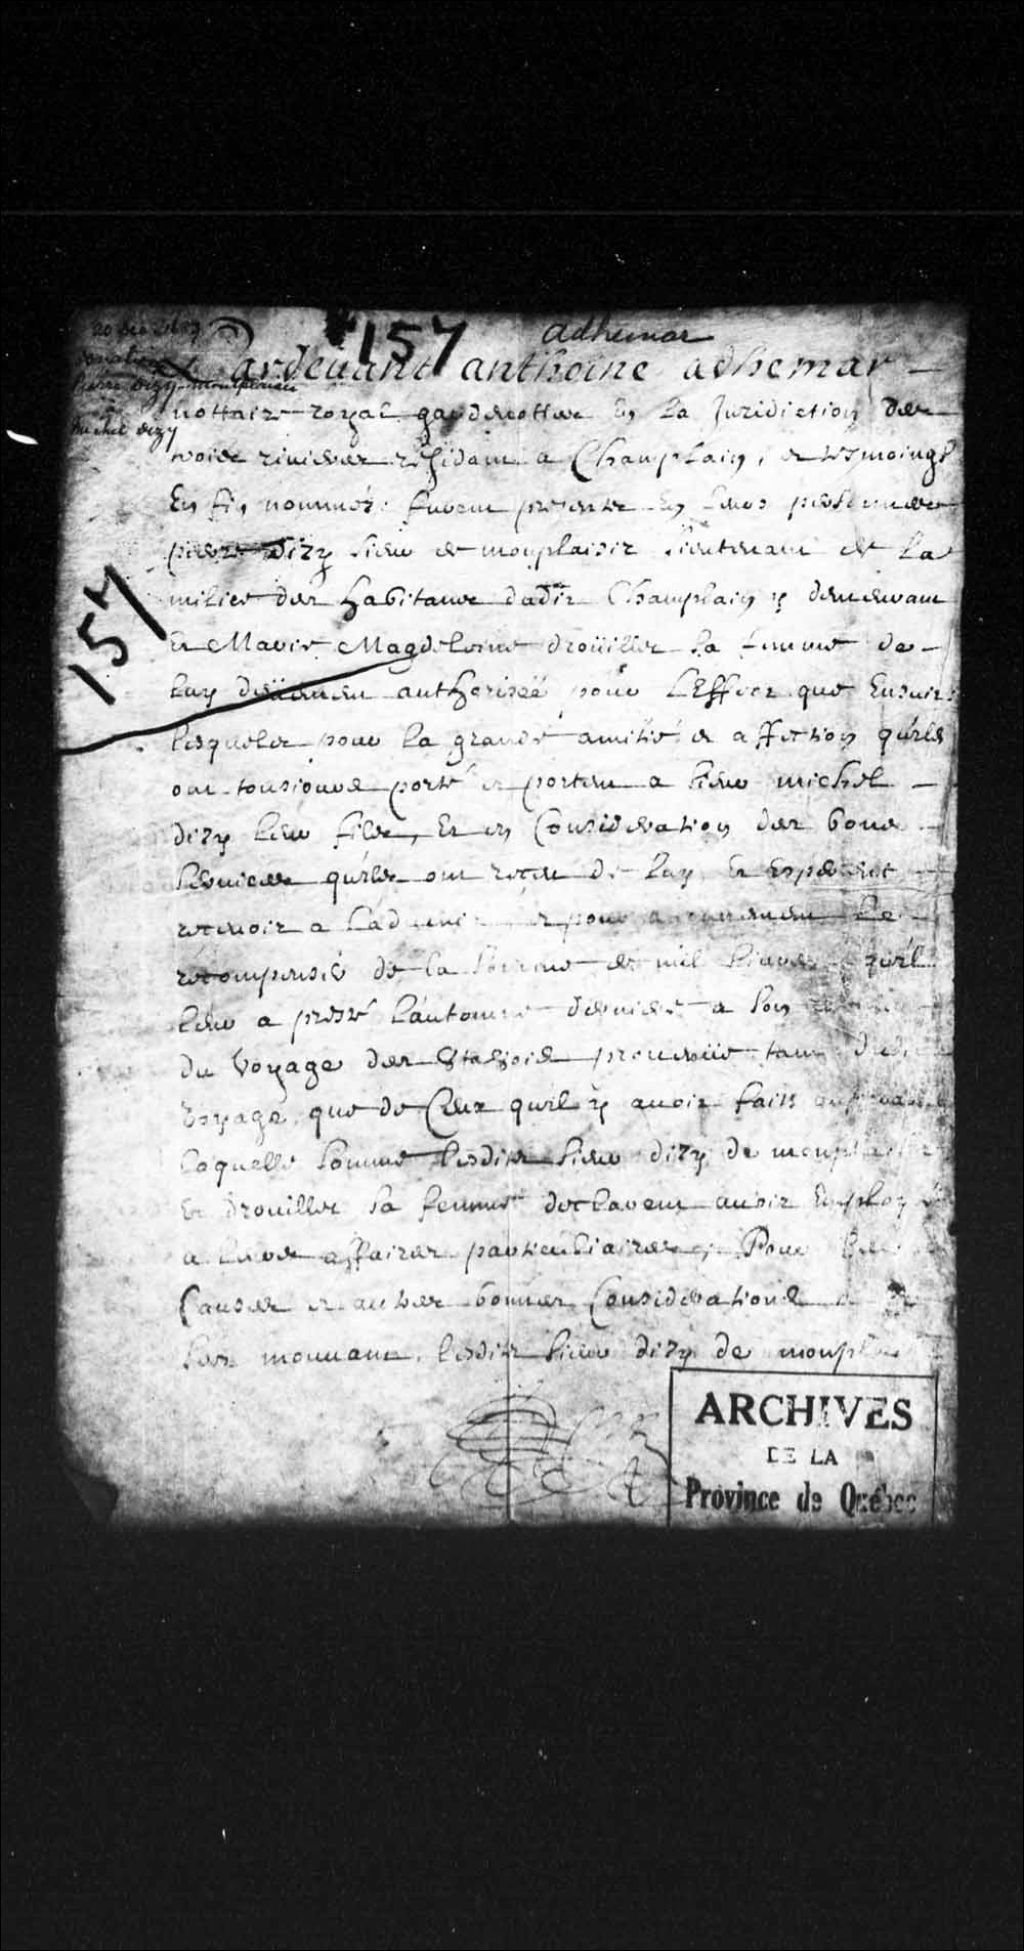 157
adhemar
20 dec 1689
donation
Pierre dizy monplaisir
a
michel dizy
Pardeuant anthoine adhemar
nottaire royal gardenottes en la Juridiction des
trois riuieres residant a Champlain, et tesmoings
En fin nommés. furent presents En leurs personnes
pierre dizy sieur de monplaisir lieutenant de la
milice des habitans dudit Champlain y demeurant
Et Marie Magdeleine droüillet sa femme de
157
luy deüement authorisée pour l'Effect que Ensuit
lesquels pour la grande amitié et affection quils
ont tousiours porté et portent a sieur michel
dizy leur fils, Et en Consideration des bons
seruices quils ont receu de luy Et Esperent
receuoir a l'aduenir et pour aucunement le
recompensé de la somme de mil liures quil
leur a presté l'automne dernier a son
du Voyage des 8ta8ois prouenüe tant dudit
Voyage que de Ceux quil y auoit faits
laquelle somme lesdits sieur dizy de monplaisir
Et drouillet sa femme declarent auoir Employé
a leurs affaires particuliaires, Pour
Causes et autres bonnes Considerations
les mouuant, lesdits sieur dizy de monpl
ARCHIVES
DE LA
Province de Québec